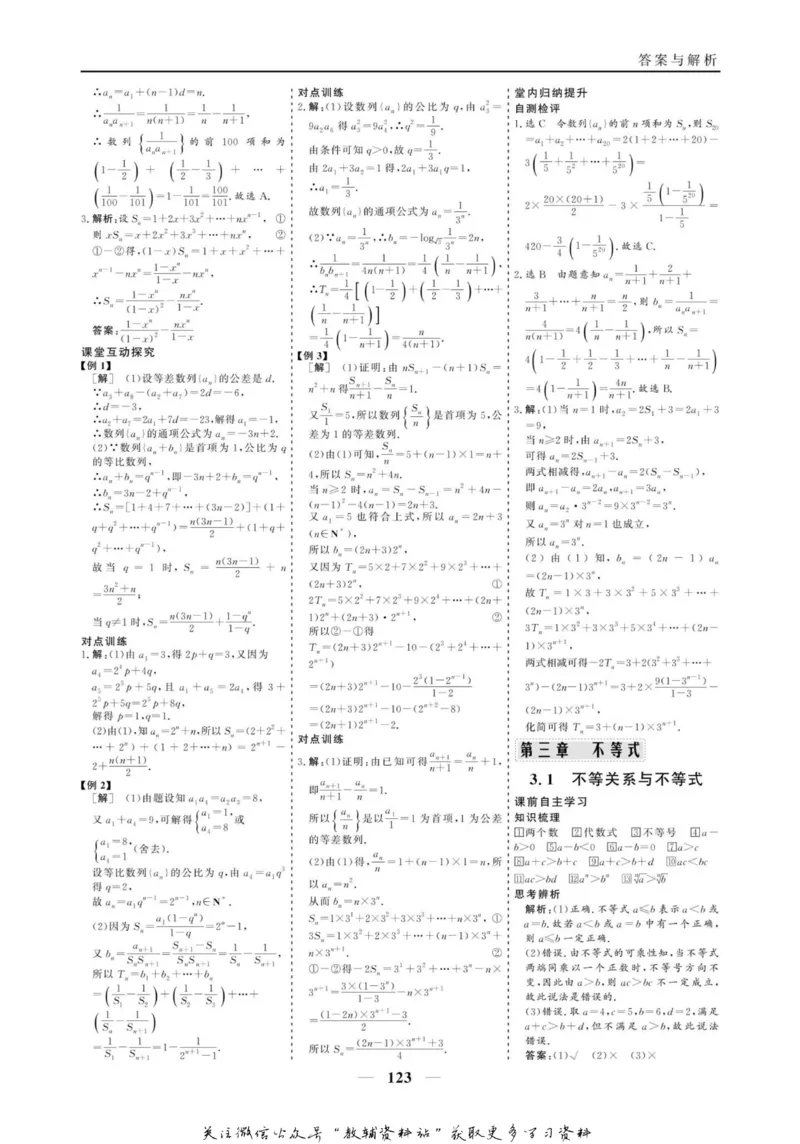 答案与解析
∴aₙ=a₁+(n-1)d=n.
∴1/(aₙaₙ₊₁)=1/(n(n+1))=1/n-1/(n+1),
∴数列{1/(aₙaₙ₊₁)}的前 100 项和为
(1-1/2)+(1/2-1/3)+…+
(1/100-1/101)=1-1/101=100/101.故选 A.
3.解析:设 Sₙ=1+2x+3x²+…+nxⁿ⁻¹, ①
则 xSₙ=x+2x²+3x³+…+nxⁿ, ②
①-②得,(1-x)Sₙ=1+x+x²+…+
xⁿ⁻¹-nxⁿ=(1-xⁿ)/(1-x)-nxⁿ,
∴Sₙ=(1-xⁿ)/(1-x)²-nxⁿ/(1-x).
答案:(1-xⁿ)/(1-x)²-nxⁿ/(1-x)
课堂互动探究
【例 1】
[解] (1)设等差数列{aₙ}的公差是 d.
∵a₃+a₈-(a₂+a₇)=2d=-6,
∴d=-3,
∴a₂+a₇=2a₁+7d=-23,解得 a₁=-1,
∴数列{aₙ}的通项公式为 aₙ=-3n+2.
(2)∵数列{aₙ+bₙ}是首项为 1,公比为 q
的等比数列,
∴aₙ+bₙ=qⁿ⁻¹,即-3n+2+bₙ=qⁿ⁻¹,
∴bₙ=3n-2+qⁿ⁻¹,
∴Sₙ=[1+4+7+…+(3n-2)]+(1+
q+q²+…+qⁿ⁻¹)=n(3n-1)/2+(1+q+
q²+…+qⁿ⁻¹),
故当 q=1 时,Sₙ=n(3n-1)/2+n
=(3n²+n)/2;
当 q≠1 时,Sₙ=n(3n-1)/2+(1-qⁿ)/(1-q).
对点训练
1.解:(1)由 a₁=3,得 2p+q=3,又因为
a₄=2⁴p+4q,
a₅=2⁵p+5q,且 a₁+a₅=2a₄,得 3+
2⁵p+5q=2⁵p+8q,
解得 p=1,q=1.
(2)由(1),知 aₙ=2ⁿ+n,所以 Sₙ=(2+2²+
…+2ⁿ)+(1+2+…+n)=2ⁿ⁺¹-
2+n(n+1)/2.
【例 2】
[解] (1)由题设知 a₁a₄=a₂a₃=8,
又 a₁+a₄=9,可解得{a₁=1, a₄=8 或
{a₁=8, a₄=1 (舍去).
设等比数列{aₙ}的公比为 q,由 a₄=a₁q³
得 q=2,
故 aₙ=a₁qⁿ⁻¹=2ⁿ⁻¹,n∈N⁺.
(2)因为 Sₙ=a₁(1-qⁿ)/(1-q)=2ⁿ-1,
又 bₙ=aₙ₊₁/(SₙSₙ₊₁)=(Sₙ₊₁-Sₙ)/(SₙSₙ₊₁)=1/Sₙ-1/Sₙ₊₁,
所以 Tₙ=b₁+b₂+…+bₙ
=(1/S₁-1/S₂)+(1/S₂-1/S₃)+…+
(1/Sₙ-1/Sₙ₊₁)
=1/S₁-1/Sₙ₊₁=1-1/(2ⁿ⁺¹-1).
对点训练
2.解:(1)设数列{aₙ}的公比为 q,由 a₃²=
9a₂a₆ 得 a₃²=9a₄²,∴q²=1/9.
由条件可知 q>0,故 q=1/3.
由 2a₁+3a₂=1 得,2a₁+3a₁q=1,
∴a₁=1/3.
故数列{aₙ}的通项公式为 aₙ=1/3ⁿ.
(2)∵aₙ=1/3ⁿ,∴bₙ=-log_√3 1/3ⁿ=2n,
∴1/(bₙbₙ₊₁)=1/(4n(n+1))=1/4(1/n-1/(n+1)),
∴Tₙ=1/4[(1-1/2)+(1/2-1/3)+…+
(1/n-1/(n+1))]
=1/4(1-1/(n+1))=n/(4(n+1)).
【例 3】
[解] (1)证明:由 nSₙ₊₁-(n+1)Sₙ=
n²+n 得 Sₙ₊₁/(n+1)-Sₙ/n=1.
又 S₁/1=5,所以数列{Sₙ/n}是首项为 5,公
差为 1 的等差数列.
(2)由(1)可知,Sₙ/n=5+(n-1)×1=n+
4,所以 Sₙ=n²+4n.
当 n≥2 时,aₙ=Sₙ-Sₙ₋₁=n²+4n-
(n-1)²-4(n-1)=2n+3.
又 a₁=5 也符合上式,所以 aₙ=2n+3
(n∈N⁺),
所以 bₙ=(2n+3)2ⁿ,
又因为 Tₙ=5×2+7×2²+9×2³+…+
(2n+3)2ⁿ, ①
2Tₙ=5×2²+7×2³+9×2⁴+…+(2n+
1)2ⁿ+(2n+3)·2ⁿ⁺¹, ②
所以②-①得
Tₙ=(2n+3)2ⁿ⁺¹-10-(2³+2⁴+…+
2ⁿ⁺¹)
=(2n+3)2ⁿ⁺¹-10-2³(1-2ⁿ⁻¹)/(1-2)
=(2n+3)2ⁿ⁺¹-10-(2ⁿ⁺²-8)
=(2n+1)2ⁿ⁺¹-2.
对点训练
3.解:(1)证明:由已知可得 aₙ₊₁/(n+1)=aₙ/n+1,
即 aₙ₊₁/(n+1)-aₙ/n=1.
所以{aₙ/n}是以 a₁/1=1 为首项,1 为公差
的等差数列.
(2)由(1)得,aₙ/n=1+(n-1)×1=n,所
以 aₙ=n².
从而 bₙ=n×3ⁿ.
Sₙ=1×3¹+2×3²+3×3³+…+n×3ⁿ, ①
3Sₙ=1×3²+2×3³+…+(n-1)×3ⁿ+
n×3ⁿ⁺¹. ②
①-②得-2Sₙ=3¹+3²+…+3ⁿ-n×
3ⁿ⁺¹=3×(1-3ⁿ)/(1-3)-n×3ⁿ⁺¹
=((1-2n)×3ⁿ⁺¹-3)/2.
所以 Sₙ=((2n-1)×3ⁿ⁺¹+3)/4.
堂内归纳提升
自测检评
1.选 C 令数列{aₙ}的前 n 项和为 Sₙ,则 S₂₀
=a₁+a₂+…+a₂₀=2(1+2+…+20)-
3(1/5+1/5²+…+1/5²⁰)=
2×20×(20+1)/2-3×(1/5(1-1/5²⁰))/(1-1/5)=
420-3/4(1-1/5²⁰).故选 C.
2.选 B 由题意知 aₙ=1/(n+1)+2/(n+1)+
3/(n+1)+…+n/(n+1)=n/2,则 bₙ=1/(aₙaₙ₊₁)=
4/(n(n+1))=4(1/n-1/(n+1)),所以 Sₙ=
4(1-1/2+1/2-1/3+…+1/n-1/(n+1))
=4(1-1/(n+1))=4n/(n+1).故选 B.
3.解:(1)当 n=1 时,a₂=2S₁+3=2a₁+3
=9,
当 n≥2 时,由 aₙ₊₁=2Sₙ+3,
可得 aₙ=2Sₙ₋₁+3.
两式相减得,aₙ₊₁-aₙ=2(Sₙ-Sₙ₋₁),
即 aₙ₊₁-aₙ=2aₙ,aₙ₊₁=3aₙ,
则 aₙ=a₂·3ⁿ⁻²=9×3ⁿ⁻²=3ⁿ.
又 aₙ=3ⁿ 对 n=1 也成立,
所以 aₙ=3ⁿ.
(2)由(1)知,bₙ=(2n-1)aₙ
=(2n-1)×3ⁿ,
故 Tₙ=1×3+3×3²+5×3³+…+
(2n-1)×3ⁿ,
3Tₙ=1×3²+3×3³+5×3⁴+…+(2n-
1)×3ⁿ⁺¹,
两式相减可得-2Tₙ=3+2(3²+3³+…+
3ⁿ)-(2n-1)3ⁿ⁺¹=3+2×9(1-3ⁿ⁻¹)/(1-3)-
(2n-1)×3ⁿ⁺¹,
化简可得 Tₙ=3+(n-1)×3ⁿ⁺¹.
第三章 不等式
3.1 不等关系与不等式
课前自主学习
知识梳理
1两个数 2代数式 3不等号 4a-
b>0 5a-b<0 6a-b=0 7a>c
8a+c>b+c 9a+c>b+d 10ac<bc
11ac>bd 12aⁿ>bⁿ 13ⁿ√a>ⁿ√b
思考辨析
解析:(1)正确.不等式 a≤b 表示 a<b 或
a=b.故若 a<b 或 a=b 中有一个正确,
则 a≤b 一定正确.
(2)错误.由不等式的可乘性知,当不等式
两端同乘以一个正数时,不等号方向不
变,因此由 a>b,则 ac>bc 不一定成立,
故此说法是错误的.
(3)错误.取 a=4,c=5,b=6,d=2,满足
a+c>b+d,但不满足 a>b,故此说法
错误.
答案:(1)√ (2)× (3)×
— 123 —
关注微信公众号“教辅资料站”获取更多学习资料